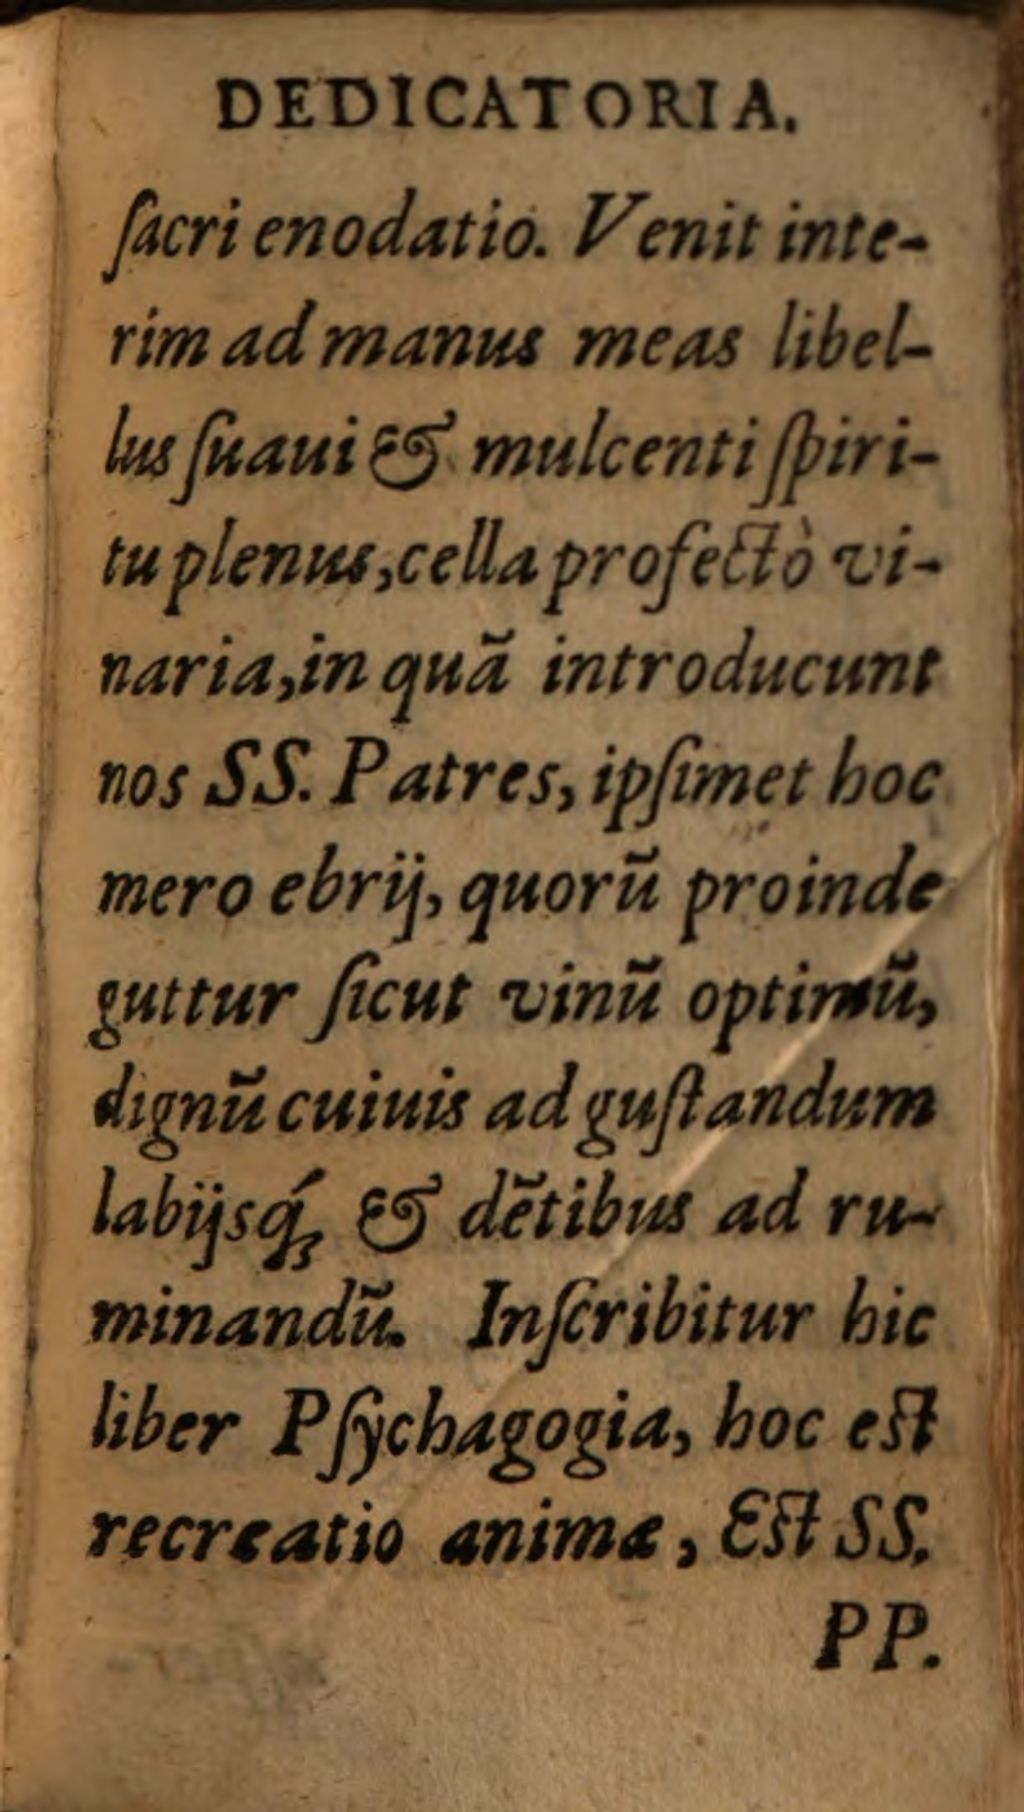 DEDICATORIA.
ſacri enodatio. Venit inte-
rim ad manus meas libel-
lus ſuaui & mulcenti ſpiri-
tu plenus, cella profectò vi-
naria, in quã introducunt
nos SS. Patres, ipſimet hoc
mero ebrij, quorũ proinde
guttur ſicut vinũ optimũ,
dignũ cuiuis ad guſtandum
labijsq́; & dẽtibus ad ru-
minandũ. Inſcribitur hic
liber Pſychagogia, hoc eſt
recreatio animæ, Eſt SS.
PP.